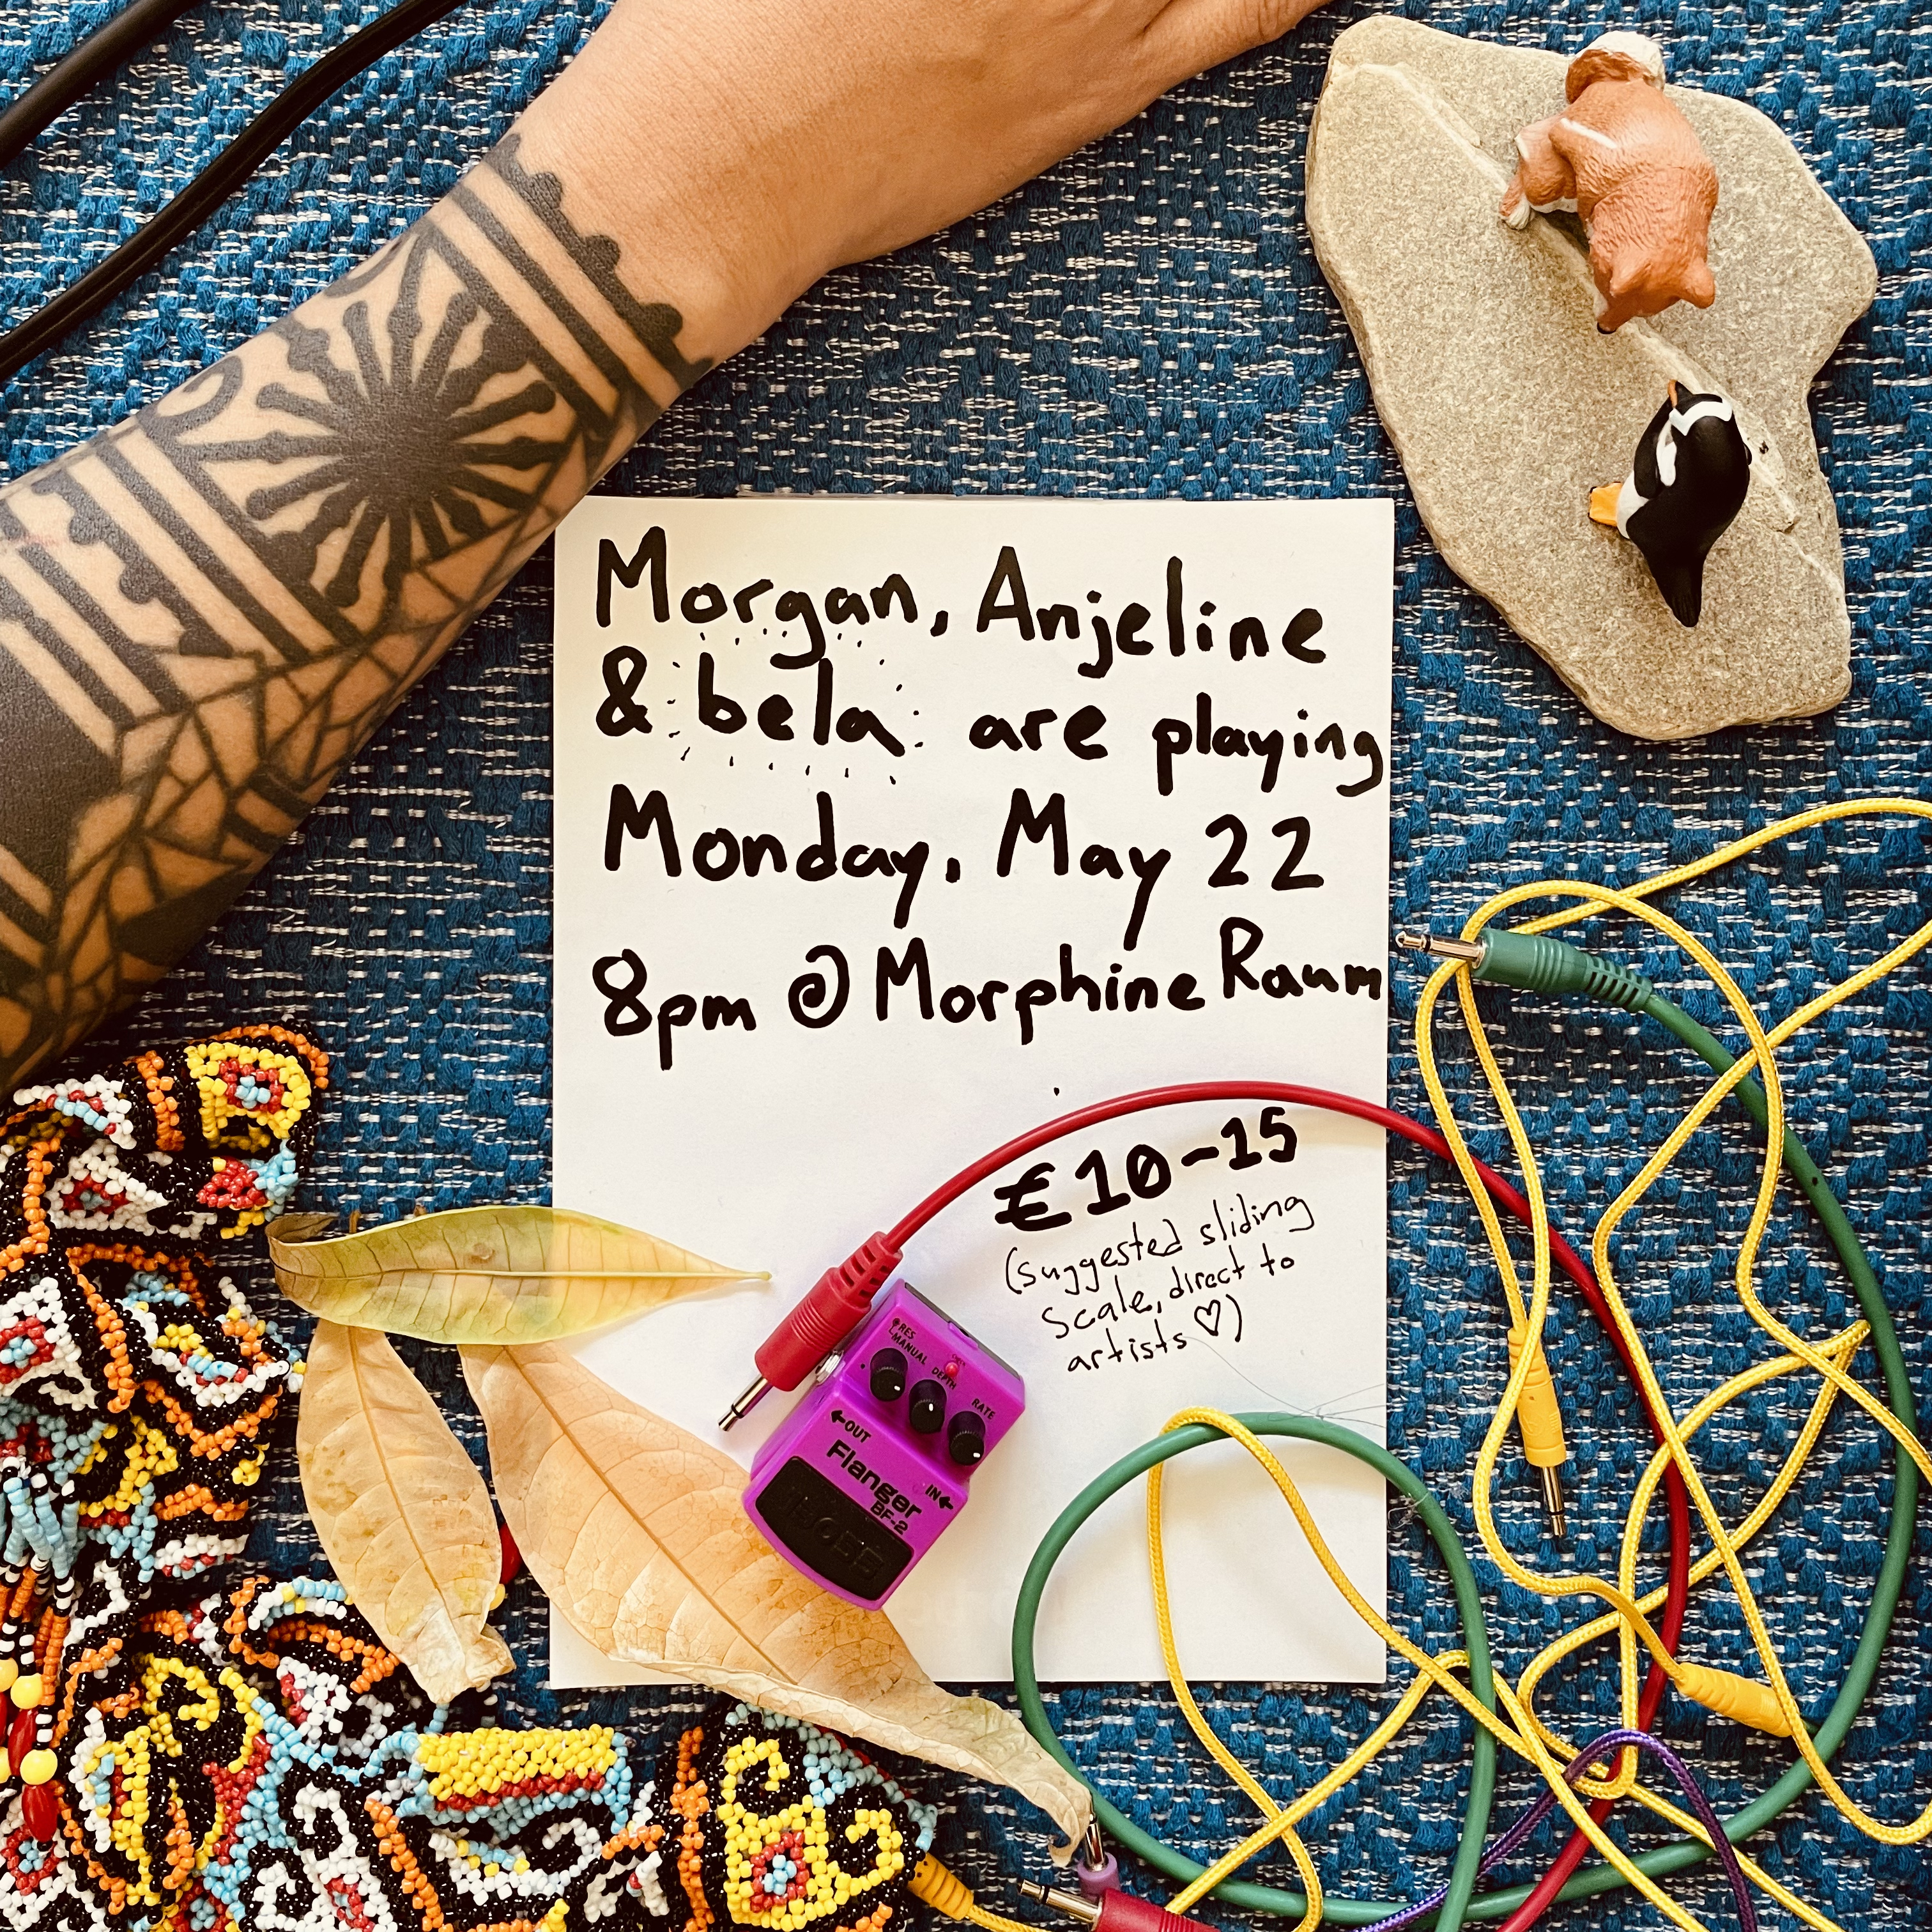 Morgan, Anjeline
& bela are playing
Monday, May 22
8pm @ Morphine Raum
€10-15
(suggested sliding
scale, direct to
artists ♡)
RES
MANUAL
DEPTH
RATE
←OUT
IN←
Flanger
BF-2
BOSS